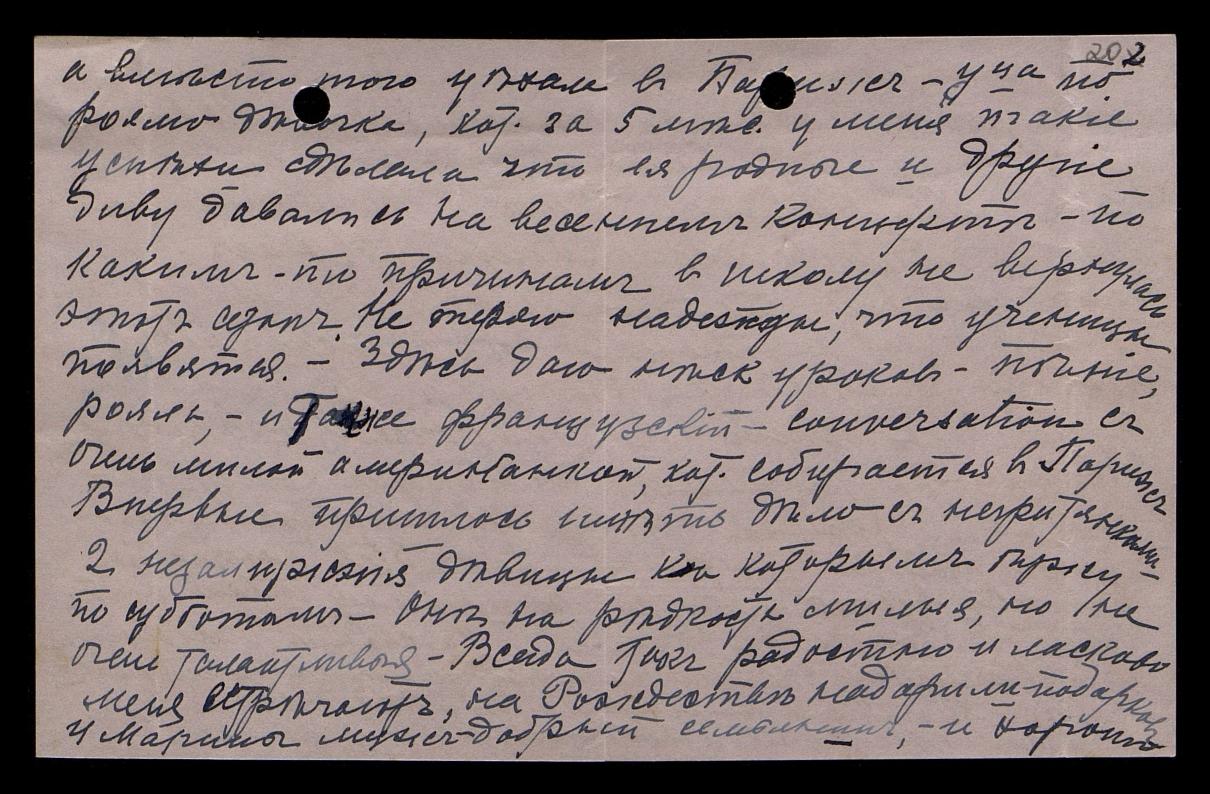 202
а вместо того уѣхала в Парижъ – уча по
роялю дѣвочка, кот. за 5 мѣс. у меня такіе
успѣхи сдѣлала что ея родные и другіе
диву давались на весеннемъ концертѣ – по
какимъ-то причинамъ в школу не вернулась
этотъ сезонъ. Не теряю надежды, что ученицы
появятся. – Здѣсь даю нѣск уроковъ – пѣніе,
рояль, – и также французскій – conversation съ
очень милой американкой, кот. собирается в Парижъ
Впервые пришлось имѣть дѣло съ негритянками –
2 незамужнія дѣвицы к которымъ ѣзжу
по субботамъ – Онѣ на рѣдкость милыя, но не
очень талантливыя – Всегда такъ радостно и ласково
меня встрѣчаютъ, на Рождество надарили подарков
У Марины мужъ – добрый семьянинъ, – и хорошо